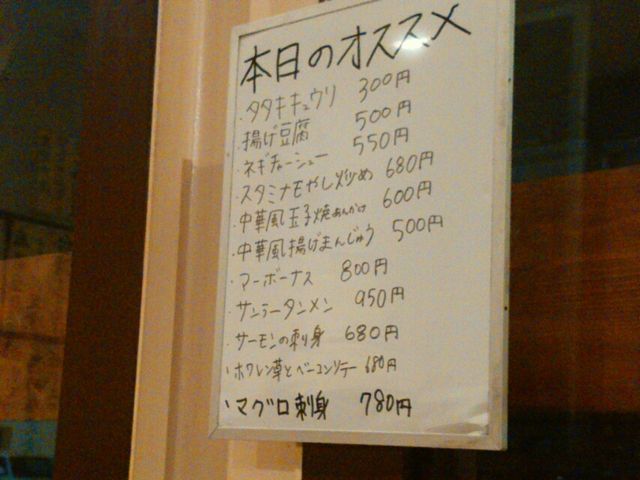 本日のオススメ
・タタキキュウリ 300円
・揚げ豆腐 500円
・ネギチャーシュー 550円
・スタミナモやし炒め 680円
・中華風玉子焼あんかけ 600円
・中華風揚げまんじゅう 500円
・マーボーナス 800円
・サンラータンメン 950円
・サーモンの刺身 680円
・ホウレン草とベーコンソテー 680円
・マグロ刺身 780円